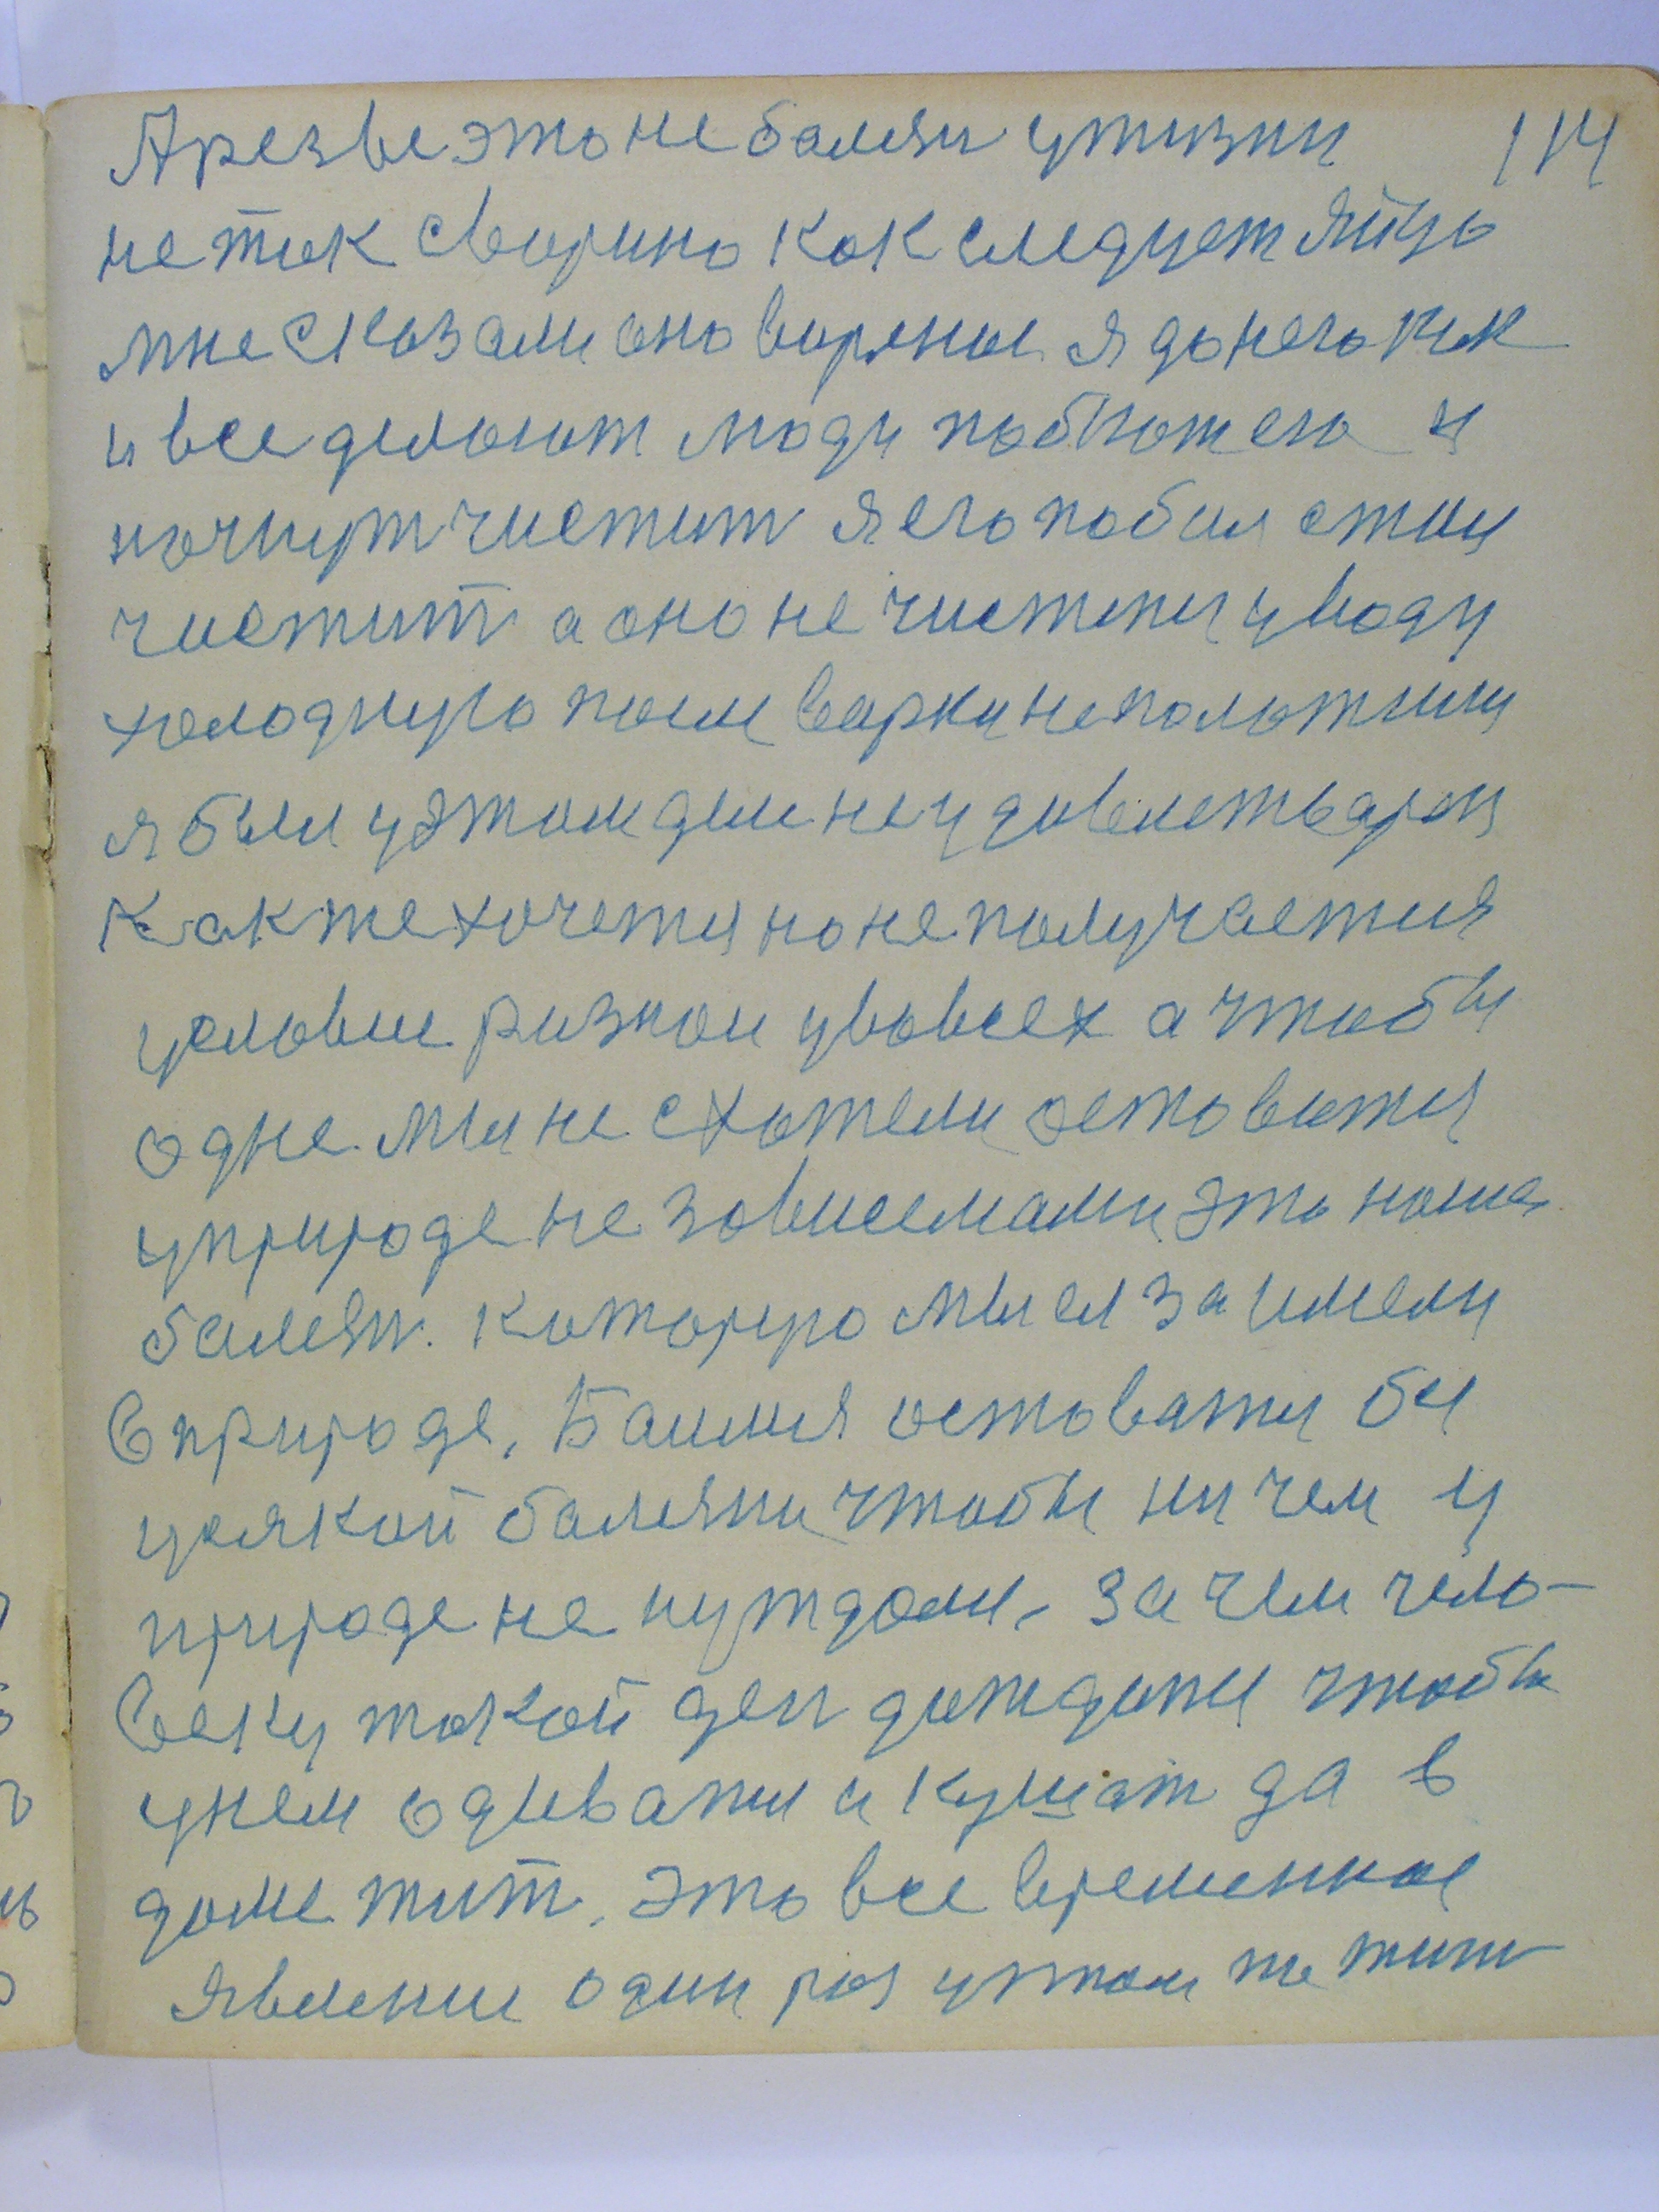 А резве это не балезн у жизни 114
не так сварино как следует яйцо
мне сказали оно вареное я до него как
и все делают люди побьют его и
начнут чистит я его побил стал
чистит а оно не чистится у воду
холодную после варки не положили
я был у этом деле не удовлетварен
Как же хочется но не получается
условие разное у во всех а чтобы
одне мы не схотели оставатся
у природе не зависемами это наша
балезн. которую мы ей за имели
в природе. Баимся оставатся без
усякой балезни чтобы ни чем у
природе не нуждали, за чем чело-
веку такой ден дождатся чтобы
у нем одиватся и кушат да в
доме жит. Это все временное
явление один раз у том же жит